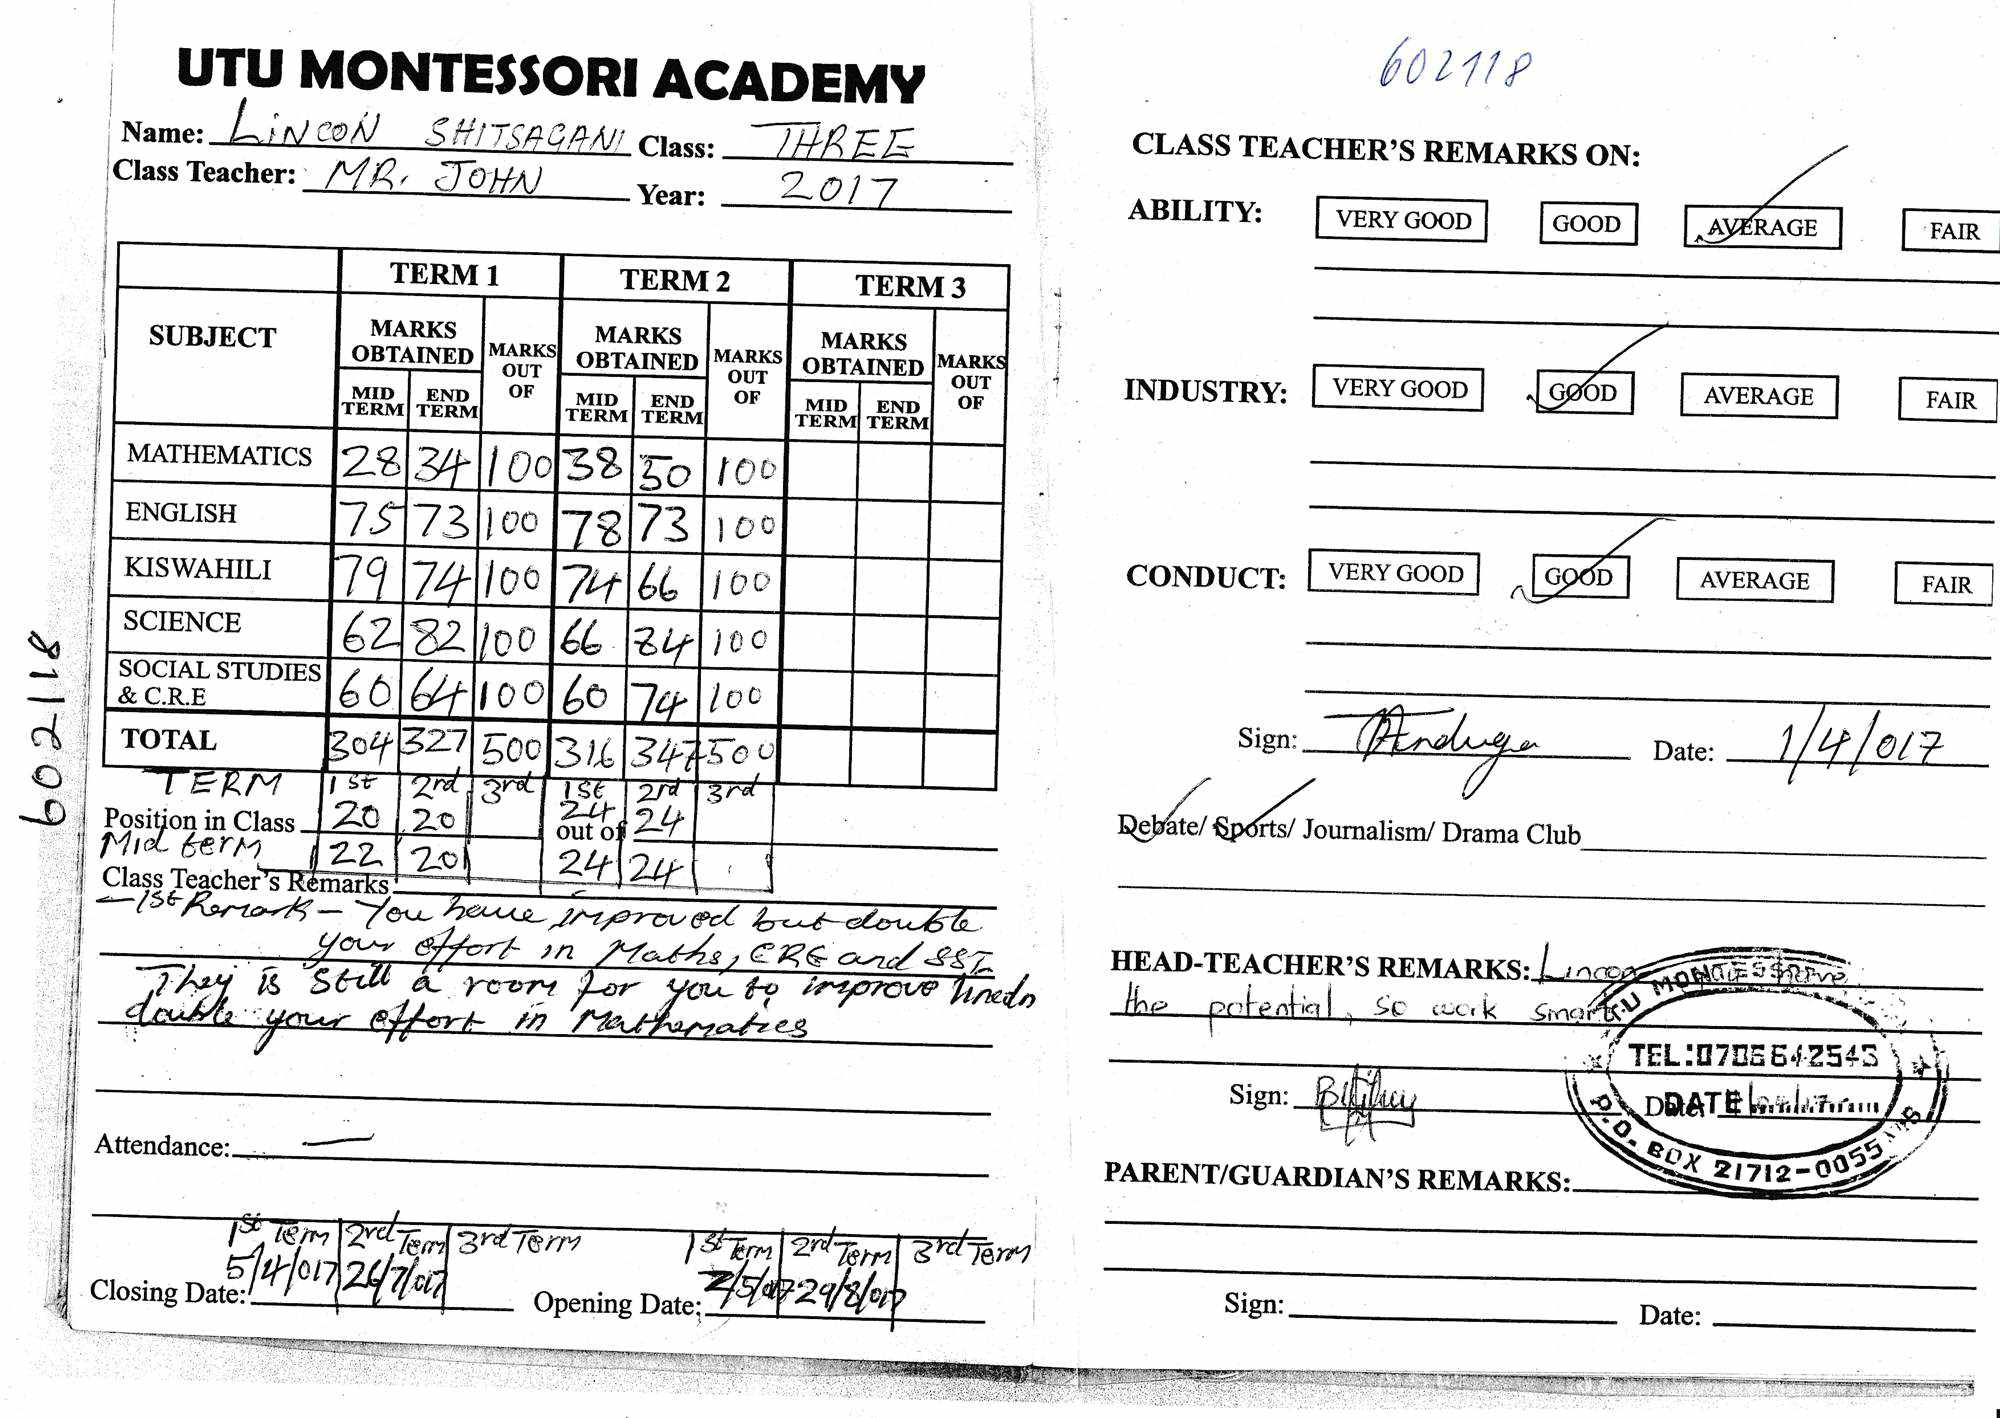 UTU MONTESSORI ACADEMY
Name: LINCON SHITSAGANI Class: THREE
Class Teacher: MR. JOHN Year: 2017
SUBJECT TERM 1 TERM 2 TERM 3
MARKS OBTAINED MARKS OUT OF MARKS OBTAINED MARKS OUT OF MARKS OBTAINED MARKS OUT OF
MID TERM END TERM MID TERM END TERM MID TERM END TERM
MATHEMATICS 28 34 100 38 50 100
ENGLISH 75 73 100 78 73 100
KISWAHILI 79 74 100 74 66 100
SCIENCE 62 82 100 66 84 100
SOCIAL STUDIES & C.R.E 60 64 100 60 74 100
TOTAL 304 327 500 316 347 500
TERM 1st 2nd 3rd 1st 2nd 3rd
Position in Class 20 20 out of 24 24
Mid term 22 20 24 24
Class Teacher's Remarks
- 1st Remark - You have improved but double
your effort in Maths, CRE and SST
They is still a room for you to improve
double your effort in Mathematics
Attendance: —
1st Term 2nd Term 3rd Term 1st Term 2nd Term 3rd Term
Closing Date: 5/4/017 26/7/017 Opening Date: 2/5/017 29/8/017
602118
602118
CLASS TEACHER'S REMARKS ON:
ABILITY: VERY GOOD GOOD AVERAGE FAIR
INDUSTRY: VERY GOOD GOOD AVERAGE FAIR
CONDUCT: VERY GOOD GOOD AVERAGE FAIR
Sign: Date: 1/4/017
Debate/ Sports/ Journalism/ Drama Club
HEAD-TEACHER'S REMARKS: Lincon
the potential, so work smart
TEL:0706642543
Sign: Date:
DATE
P.O. BOX 21712-0055
PARENT/GUARDIAN'S REMARKS:
Sign: Date: